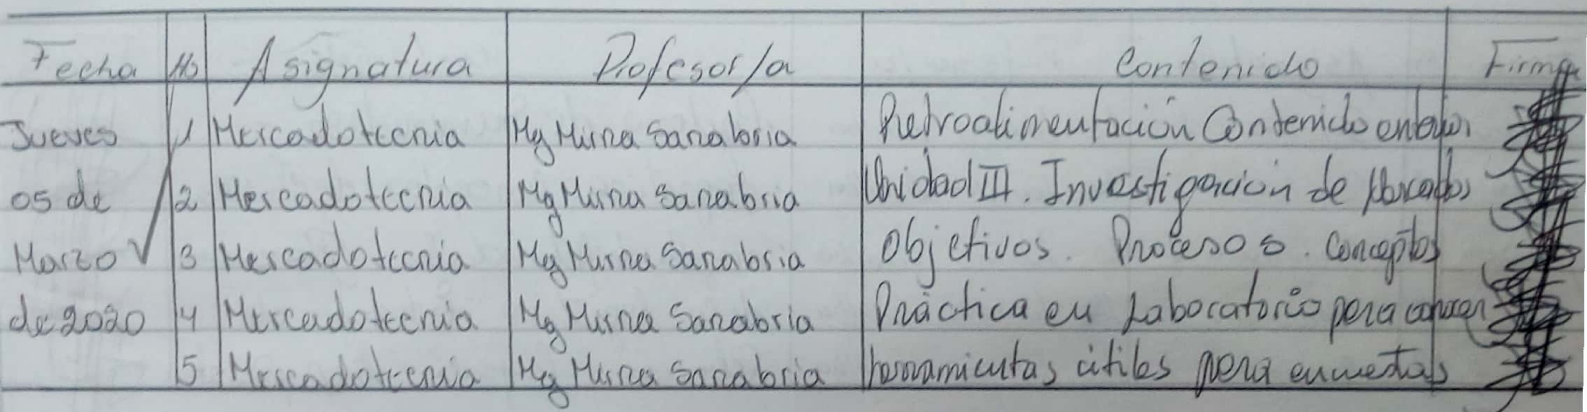 Fecha No Asignatura Profesor/a Contenido Firma
Jueves 1 Mercadotecnia Mg Mirna Sanabria Retroalimentación Contenido anterior
05 de 2 Mercadotecnia Mg Mirna Sanabria Unidad III. Investigación de Mercados
Marzo 3 Mercadotecnia Mg Mirna Sanabria Objetivos. Procesos. Conceptos
de 2020 4 Mercadotecnia Mg Mirna Sanabria Práctica en Laboratorio para conocer
5 Mercadotecnia Mg Mirna Sanabria herramientas útiles para encuestas